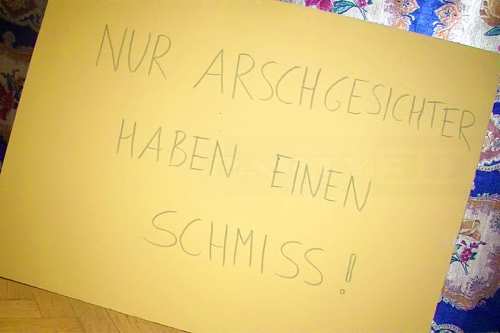 NUR ARSCHGESICHTER
HABEN EINEN
SCHMISS!